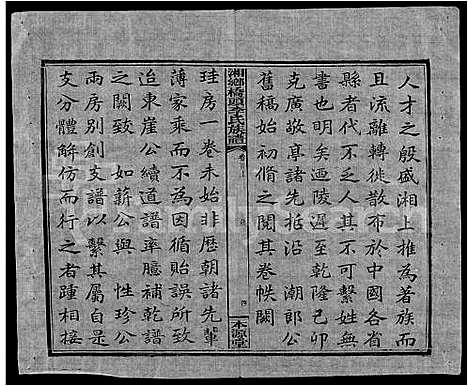 人才之殷盛湘上推為著族而
且流離轉徙散布於中國各省
縣者代不乏人其不可繫姓無
書也明矣迺陵遲至乾隆己卯
克廣敬亭諸先括沿 潮郎公
舊稿始初脩之閱其卷帙闕
湘鄉橋頭李氏族譜
卷
本源堂
珪房一卷未始非歷朝諸先輩
薄家乘而不為因循貽誤所致
迨東崖公續道譜率臆補乾譜
之闕致 如薪公與 性珍公
兩房別創支譜以繫其屬自是
支分體解仿而行之者踵相接